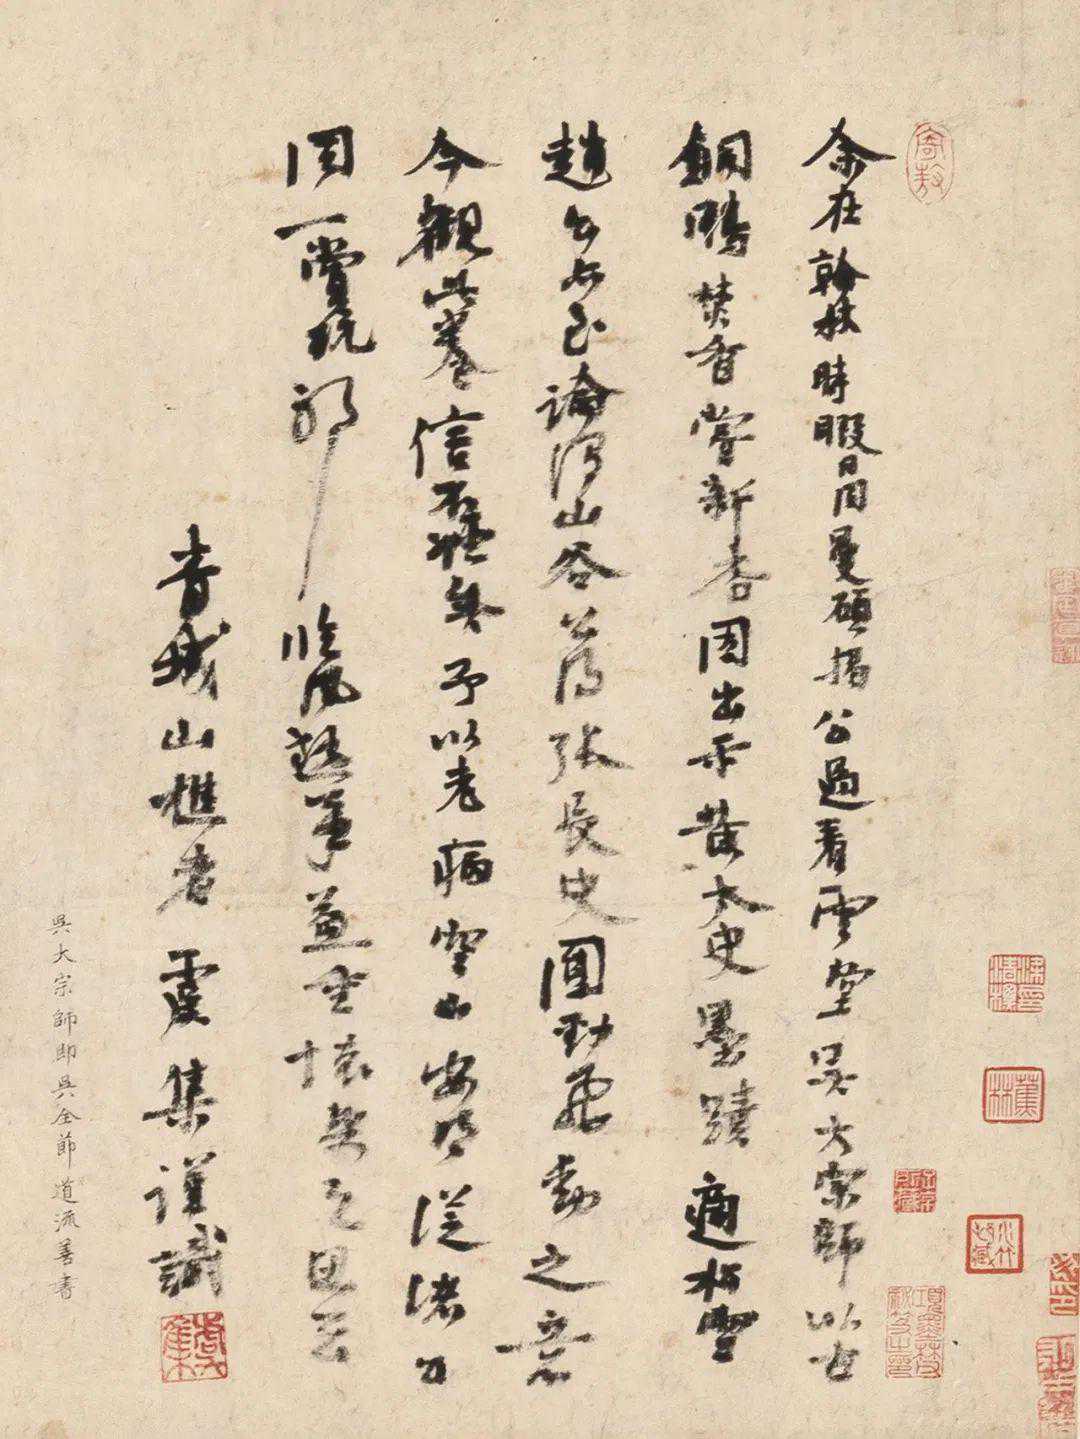 余在翰林時暇日同曼碩揭公過看雲堂吳大宗師以古
銅鴨焚香嘗新杏因出示黃太史墨蹟適松雪
趙公亦至論謂山谷公得張長史圓勁飛動之意
今觀此卷信不誣矣予以老病空山安得從諸公
同一賞玩耶臨風筆益懷之思云
青城山樵者虞集謹識
虞集
吳大宗師即吳全節道流善書
蕉林